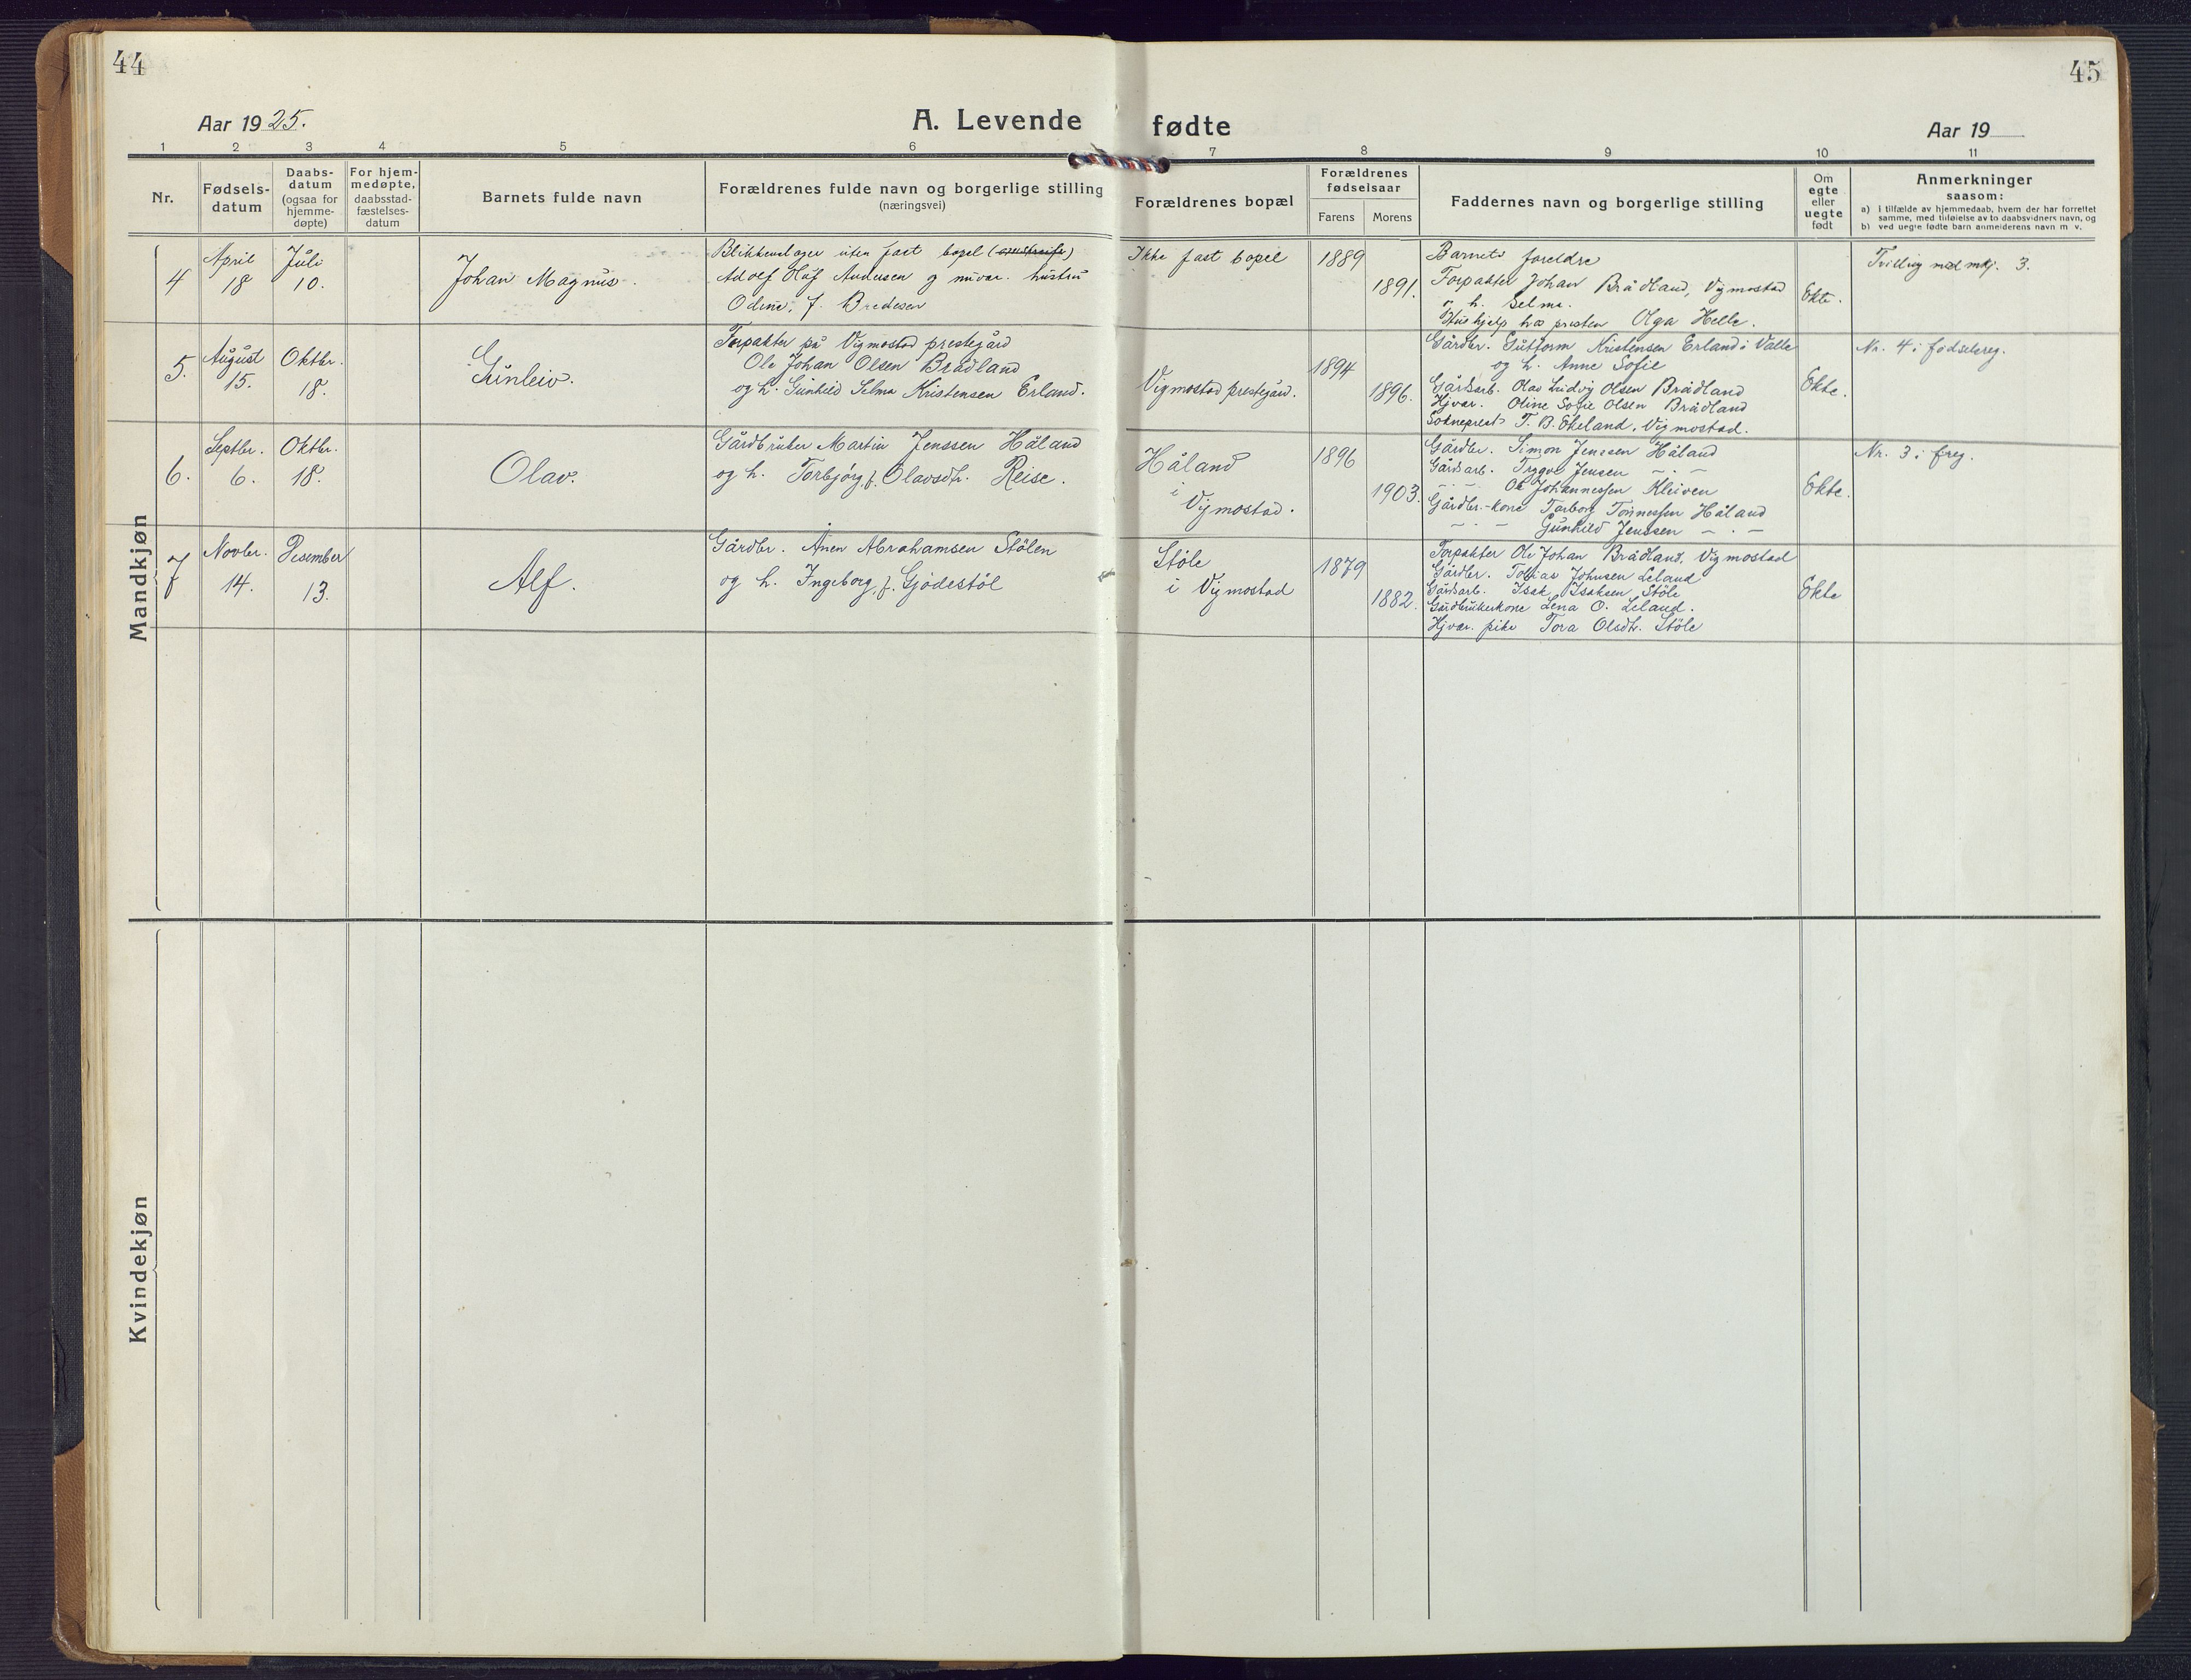 44
45
Aar 1925.
A. Levende fødte
Aar 19
1 2 3 4 5 6 7 8 9 10 11
Nr.
Fødsels-
datum
Daabs-
datum
(ogsaa for
hjemme-
døpte)
For hjem-
medøpte,
daabsstad-
fæstelses-
datum
Barnets fulde navn
Forældrenes fulde navn og borgerlige stilling
(næringsvei)
Forældrenes bopæl
Forældrenes
fødselsaar
Farens Morens
Faddernes navn og borgerlige stilling
Om
egte
eller
uegte
født
Anmerkninger
saasom:
a) i tilfælde av hjemmedaab, hvem der har forrettet
samme, med tilføielse av to daabsvidners navn, og
b) ved uegte fødte barn anmelderens navn m. v.
Mandkjøn
4
April
18
Juli
10.
Johan Magnus.
Blikkenslager uten fast bopel
Adolf Oluf Andersen og nuvær. hustru
Odine, f. Bredesen
Ikke fast bopel
1889
1891.
Barnets foreldre
Forpakter Johan Brådland, Vigmostad
o h. Selma.
Hushjelp hos presten Olga Helle.
Ekte.
Tvilling med mkj. 3.
5.
August
15.
Oktbr.
18.
Gunleiv.
Forpakter på Vigmostad prestegård
Ole Johan Olsen Brådland
og h. Gunhild Selma Kristensen Erland.
Vigmostad prestegård.
1894
1896.
Gårdbr. Guttorm Kristensen Erland i Valle
og h. Anne Sofie
Gårdsarb. Olav Ludvig Olsen Brådland
Hjvær. Oline Sofie Olsen Brådland
Sokneprest T. B. Ekeland, Vigmostad.
Ekte.
Nr. 4 i fødselsreg.
6.
Septbr.
6.
Oktbr.
18.
Olav.
Gårdbruker Martin Jenssen Håland
og h. Torbjørg, f. Olavsdtr. Reise.
Håland
i
Vigmostad.
1896
1903.
Gårdbr. Simon Jenssen Håland
Gårdsarb. Trygve Jensen — . —
— . — Ole Johannessen Kleiven
Gårdbr.-kone Torborg Tønnessen Håland
— . — Gunhild Jenssen — . —
Ekte.
Nr. 3 i freg.
7
Novbr.
14.
Desember
13.
Alf.
Gårdbr. Anen Abrahamsen Stölen
og h. Ingeborg, f. Gjödestöl
Stöle
i Vigmostad
1879
1882.
Forpakter Ole Johan Brådland, Vigmostad
Gårdbr. Tobias Johnsen Leland
Gårdsarb. Isak Isaksen Stöle
Gårdbrukerkone Lena O. Leland.
Hjvær. pike Tora Olsdtr. Stöle
Ekte
Kvindekjøn